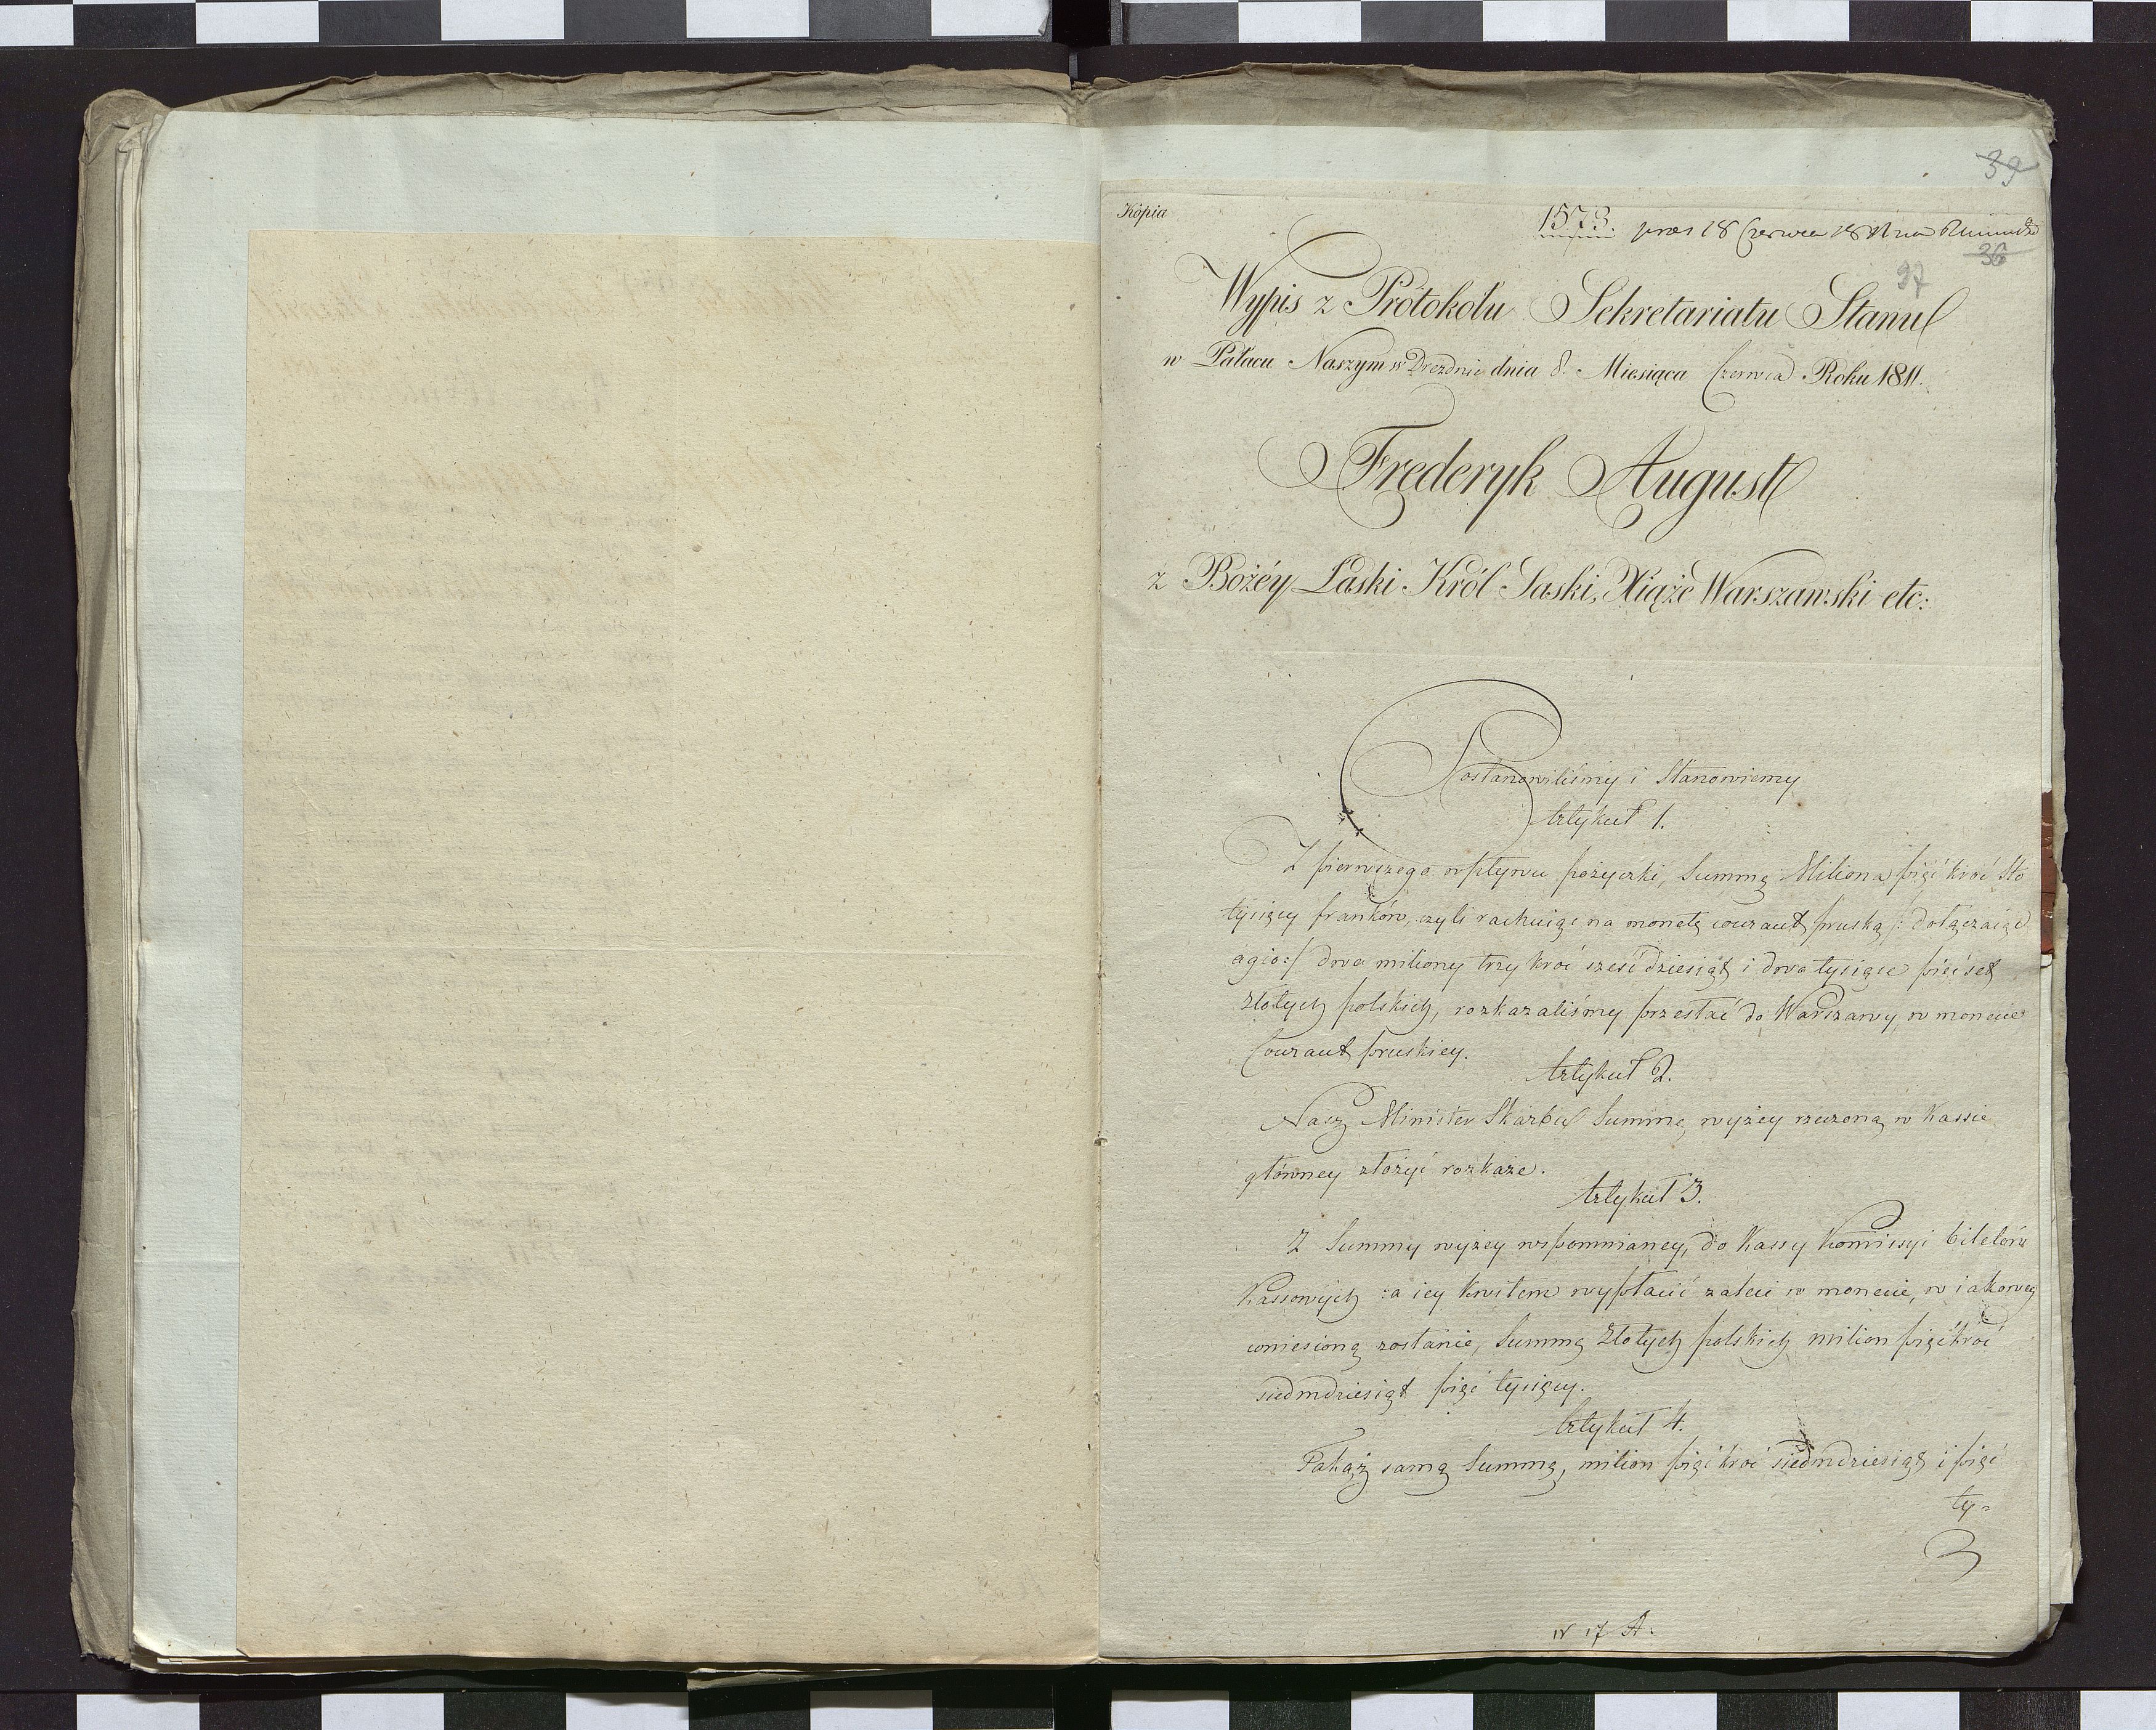 39
Kopia
1573. præs 18 Czerwca 1811
36
37
Wypis z Protokołu Sekretariatu Stanu
w Pałacu Naszym w Dreznie dnia 8. Miesiąca Czerwca Roku 1811.
Frederyk August
z Bożéy Łaski Król Saski, Xiąże Warszawski etc:
Postanowiliśmy i Stanowiemy
Artykuł 1.
Z pierwszego wpływu pożyczki, Summę Miliona pięć kroć Sto
tysięcy franków, czyli rachuiąc na monetę courant pruską /: dołączaiąc
agio:/ dwa miliony trzy kroć sześćdziesiąt i dwa tysiące pięćset
złotych polskich, rozkazaliśmy przesłać do Warszawy, w monecie
Courant pruskiey.
Artykuł 2.
Nasz Minister Skarbu Summę wyżey rzeczoną w Kassie
główney złożyć rozkaże.
Artykuł 3.
Z Summy wyżey wspomnianey, do Kassy Kommissyi biletów
Kassowych za iey kwitem wypłacić zaleci w monecie, w iakowey
wniesioną zostanie, Summę Złotych polskich milion pięćkroć
siedmdziesiąt pięć tysięcy.
Artykuł 4.
Takąż samą Summę, milion pięć kroć siedmdziesiąt i pięć
ty=
17 A.